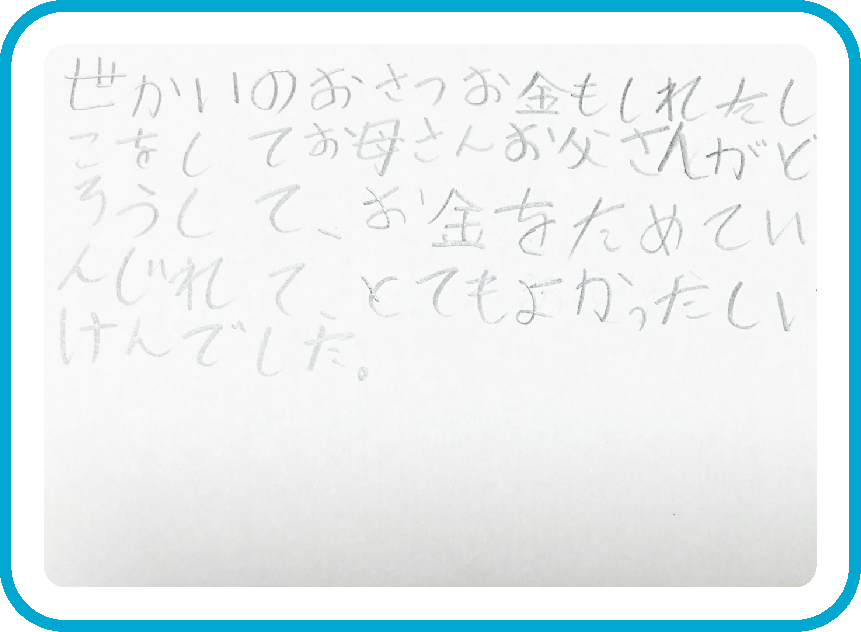 世かいのおさつお金もしれたし
こをしてお母さんお父さんがど
ろうして、お金をためてい
んじれて、とてもよかったしい
けんでした。